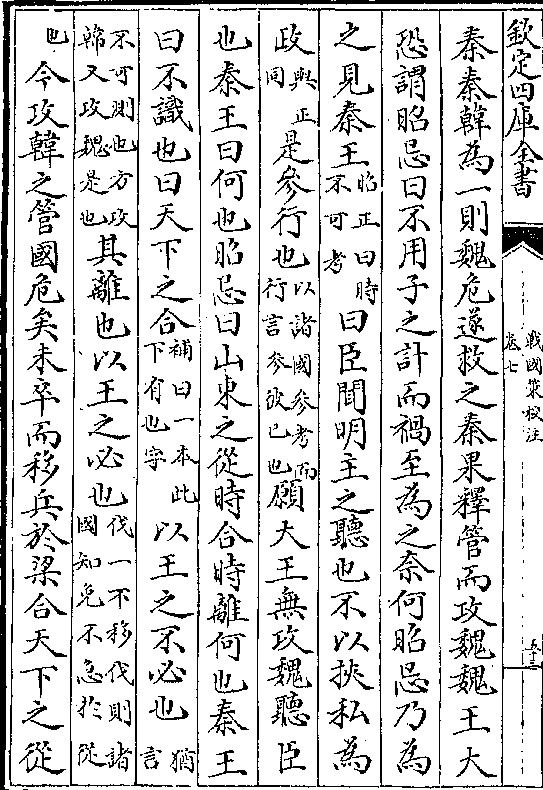 欽定四庫全書
戰國策校注
卷七
秦秦韓為一則魏危遂救之秦果釋管而攻魏魏王大
恐謂昭忌曰不用子之計而禍至為之奈何昭忌乃為
之見秦王昭正曰時不可考曰臣聞明主之聽也不以挾私為
政與正同是參行也以諸國參考而行言參彼已也願大王無攻魏聽臣
也秦王曰何也昭忌曰山東之從時合時離何也秦王
曰不識也曰天下之合補曰一本此下有也字以王之不必也猶言
不可則也方攻韓又攻魏是也其離也以王之必也伐一不移伐則諸國知免不急於從
也今攻韓之管國危矣未卒而移兵於梁合天下之從